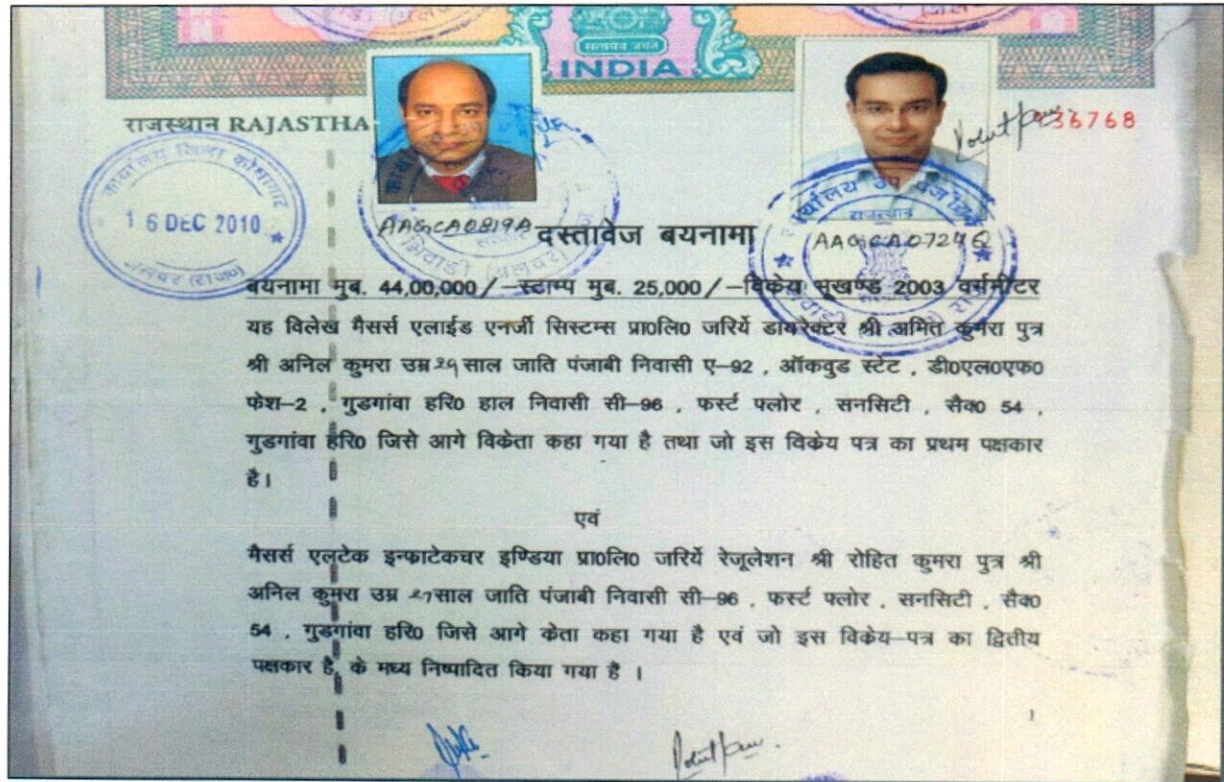 सत्यमेव जयते
INDIA
राजस्थान RAJASTHA
36768
16 DEC 2010
अलवर (राज०)
AAGCA0819A
AAGCA0724Q
दस्तावेज बयनामा
बयनामा मुब. 44,00,000/–स्टाम्प मुब. 25,000/–विक्रेय भूखण्ड 2003 वर्गमीटर
यह विलेख मैसर्स एलाईड एनर्जी सिस्टम्स प्रा0लि0 जरिये डायरेक्टर श्री अमित कुमरा पुत्र
श्री अनिल कुमरा उम्र साल जाति पंजाबी निवासी ए–92 , ऑकवुड स्टेट , डी0एल0एफ0
फेश–2 , गुडगांवा हरि0 हाल निवासी सी–96 , फर्स्ट फ्लोर , सनसिटी , सैक0 54 ,
गुडगांवा हरि0 जिसे आगे विक्रेता कहा गया है तथा जो इस विक्रेय पत्र का प्रथम पक्षकार
है।
एवं
मैसर्स एलटेक इन्फ्राटेकचर इण्डिया प्रा0लि0 जरिये रेजूलेशन श्री रोहित कुमरा पुत्र श्री
अनिल कुमरा उम्र साल जाति पंजाबी निवासी सी–96 , फर्स्ट फ्लोर , सनसिटी , सैक0
54 , गुडगांवा हरि0 जिसे आगे क्रेता कहा गया है एवं जो इस विक्रेय–पत्र का द्वितीय
पक्षकार है, के मध्य निष्पादित किया गया है ।